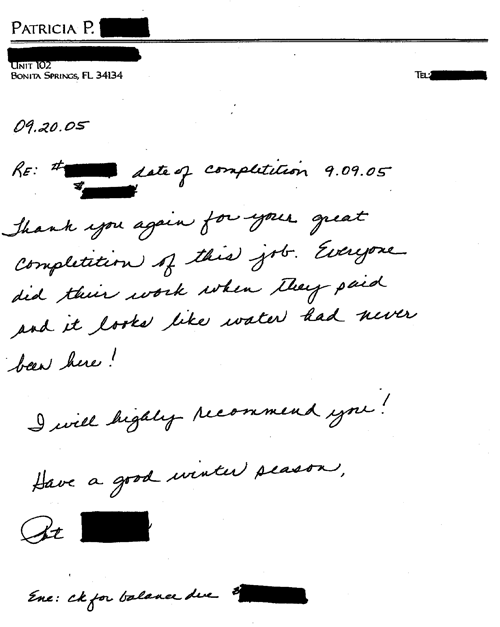 PATRICIA P.
UNIT 102
BONITA SPRINGS, FL 34134
TEL:
09.20.05
RE: # date of completition 9.09.05
$
Thank you again for your great
completition of this job. Everyone
did their work when they paid
and it looks like water had never
been here!
I will highly recommend you!
Have a good winter season,
Pat
Enc: ck for balance due $